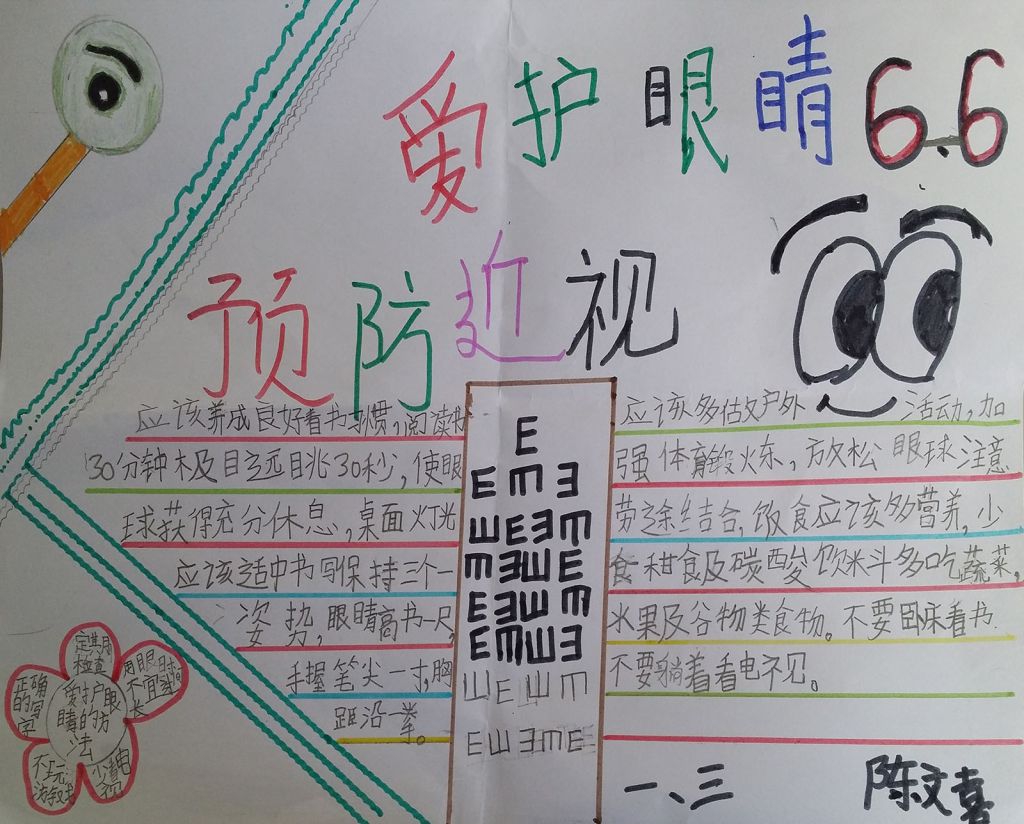 爱护眼睛6.6
预防近视
应该养成良好看书习惯,阅读书
30分钟极目远眺30秒,使眼
球获得充分休息,桌面灯光
应该适中书写保持三个一
姿势,眼睛离书一尺,
手握笔尖一寸,胸
距沿一拳。
E
E M Ǝ
E Ǝ
应该多估文户外 活动,加
强体育锻火东,放松眼球注意
劳逸结合,饭食应该多营养,少
食甜食及碳酸饮米斗多吃蔬菜,
水果及谷物类食物。不要卧床看书
不要躺着看电视。
爱护眼
睛的方
法
定期
检查
用眼时间
不宜过
长
正确
的写
字
不玩
游戏
少看电
视
一、三
陈文喜